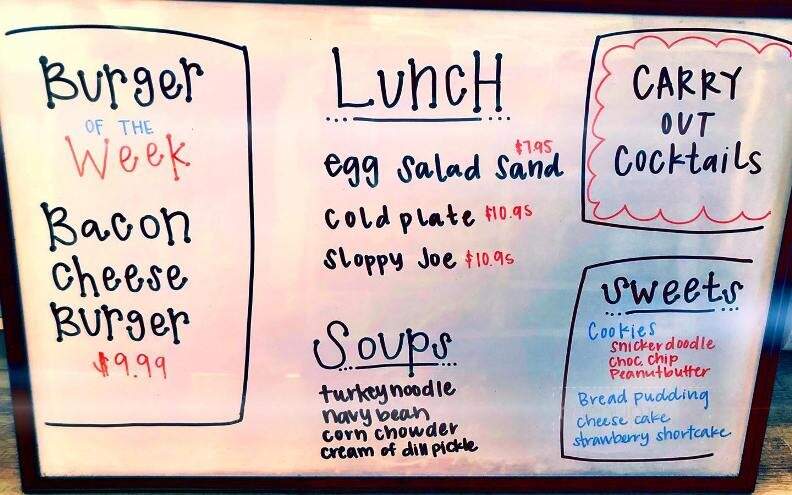 Burger
OF THE
Week
Bacon
Cheese
Burger
$9.99
Lunch
egg salad sand $7.95
cold plate $10.95
sloppy Joe $10.95
Soups
turkey noodle
navy bean
corn chowder
cream of dill pickle
CARRY
OUT
Cocktails
Sweets
Cookies
Snickerdoodle
choc. chip
Peanutbutter
Bread pudding
cheese cake
strawberry shortcake